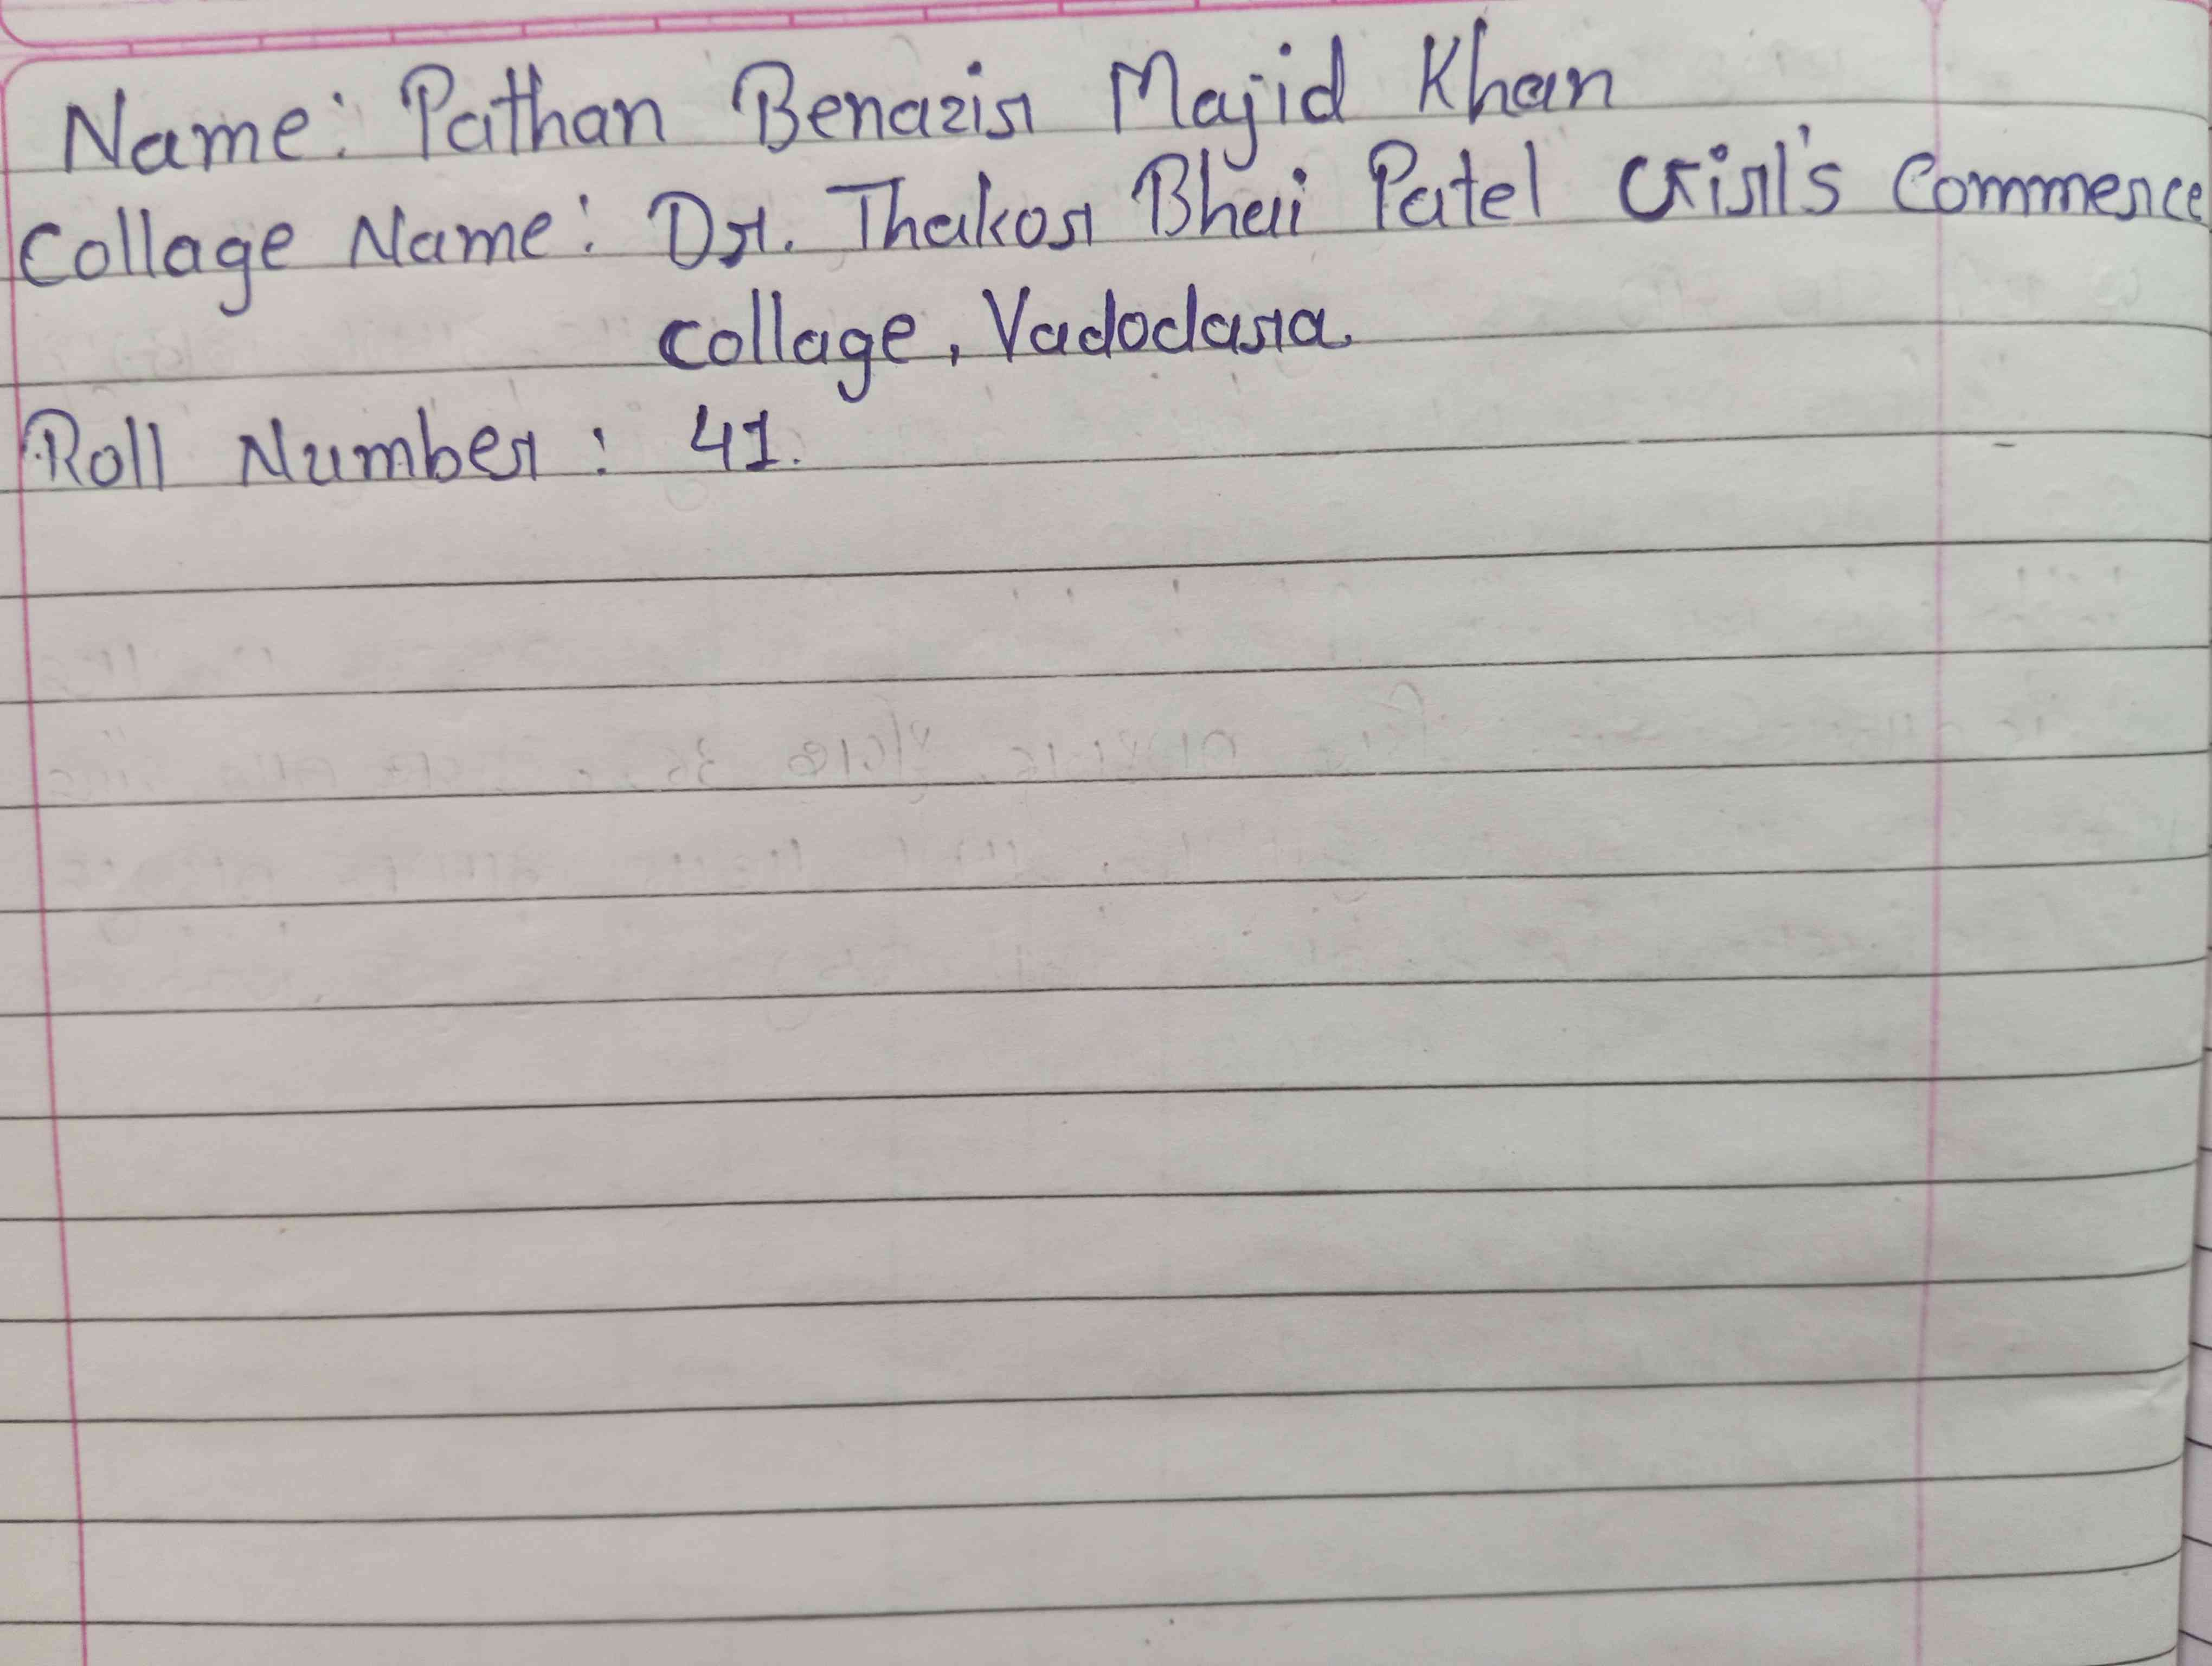 Name: Pathan Benazir Majid Khan
Collage Name: Dr. Thakor Bhai Patel Girl's Commerce
collage, Vadodara.
Roll Number: 41.